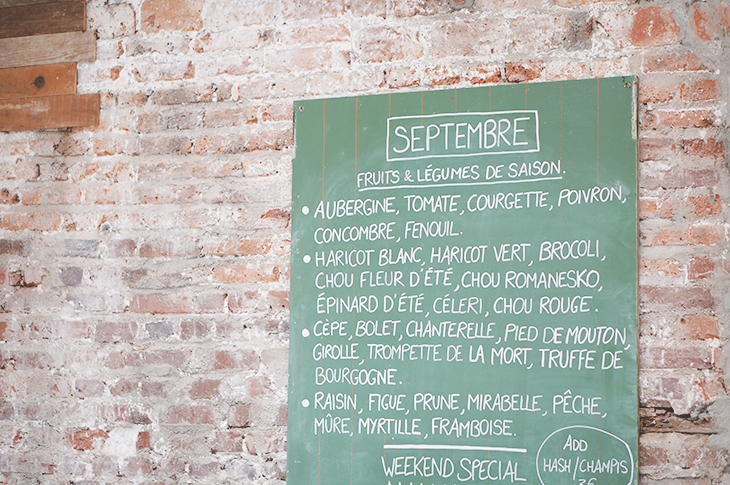 SEPTEMBRE
FRUITS & LÉGUMES DE SAISON.
• AUBERGINE, TOMATE, COURGETTE, POIVRON,
CONCOMBRE, FENOUIL.
• HARICOT BLANC, HARICOT VERT, BROCOLI,
CHOU FLEUR D'ÉTÉ, CHOU ROMANESKO,
ÉPINARD D'ÉTÉ, CÉLERI, CHOU ROUGE.
• CÈPE, BOLET, CHANTERELLE, PIED DE MOUTON,
GIROLLE, TROMPETTE DE LA MORT, TRUFFE DE
BOURGOGNE.
• RAISIN, FIGUE, PRUNE, MIRABELLE, PÊCHE,
MÛRE, MYRTILLE, FRAMBOISE.
WEEKEND SPECIAL
ADD
HASH/CHAMPIS